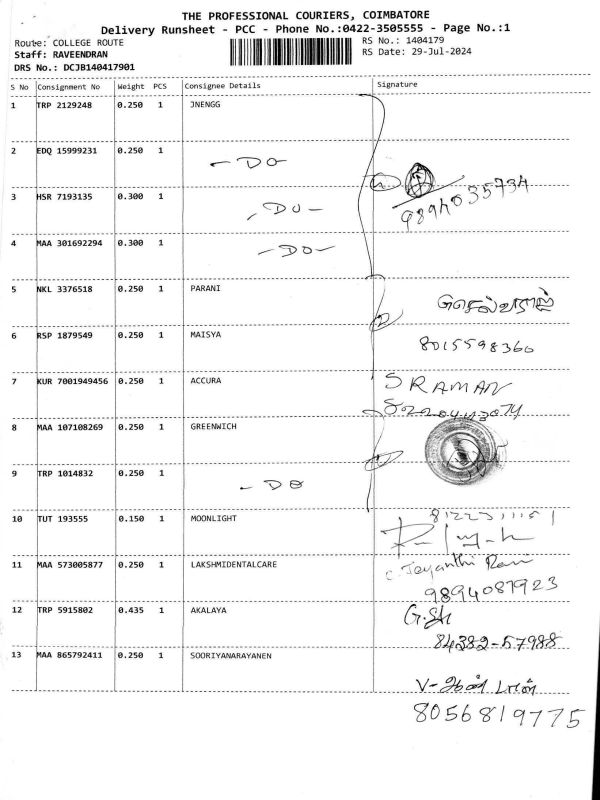 THE PROFESSIONAL COURIERS, COIMBATORE
Delivery Runsheet - PCC - Phone No.:0422-3505555 - Page No.:1
Route: COLLEGE ROUTE RS No.: 1404179
Staff: RAVEENDRAN RS Date: 29-Jul-2024
DRS No.: DCJB140417901
S No Consignment No Weight PCS Consignee Details Signature
1 TRP 2129248 0.250 1 JNENGG
2 EDQ 15999231 0.250 1 - DO
3 HSR 7193135 0.300 1 - DO - 9894035734
4 MAA 301692294 0.300 1 - DO -
5 NKL 3376518 0.250 1 PARANI
6 RSP 1879549 0.250 1 MAISYA 8015598360
7 KUR 7001949456 0.250 1 ACCURA S RAMAN
8 MAA 107108269 0.250 1 GREENWICH
9 TRP 1014832 0.250 1 - DO
10 TUT 193555 0.150 1 MOONLIGHT
11 MAA 573005877 0.250 1 LAKSHMIDENTALCARE C. Jayanthi Rani
9894087923
12 TRP 5915802 0.435 1 AKALAYA
84382-57988
13 MAA 865792411 0.250 1 SOORIYANARAYANEN
8056819775